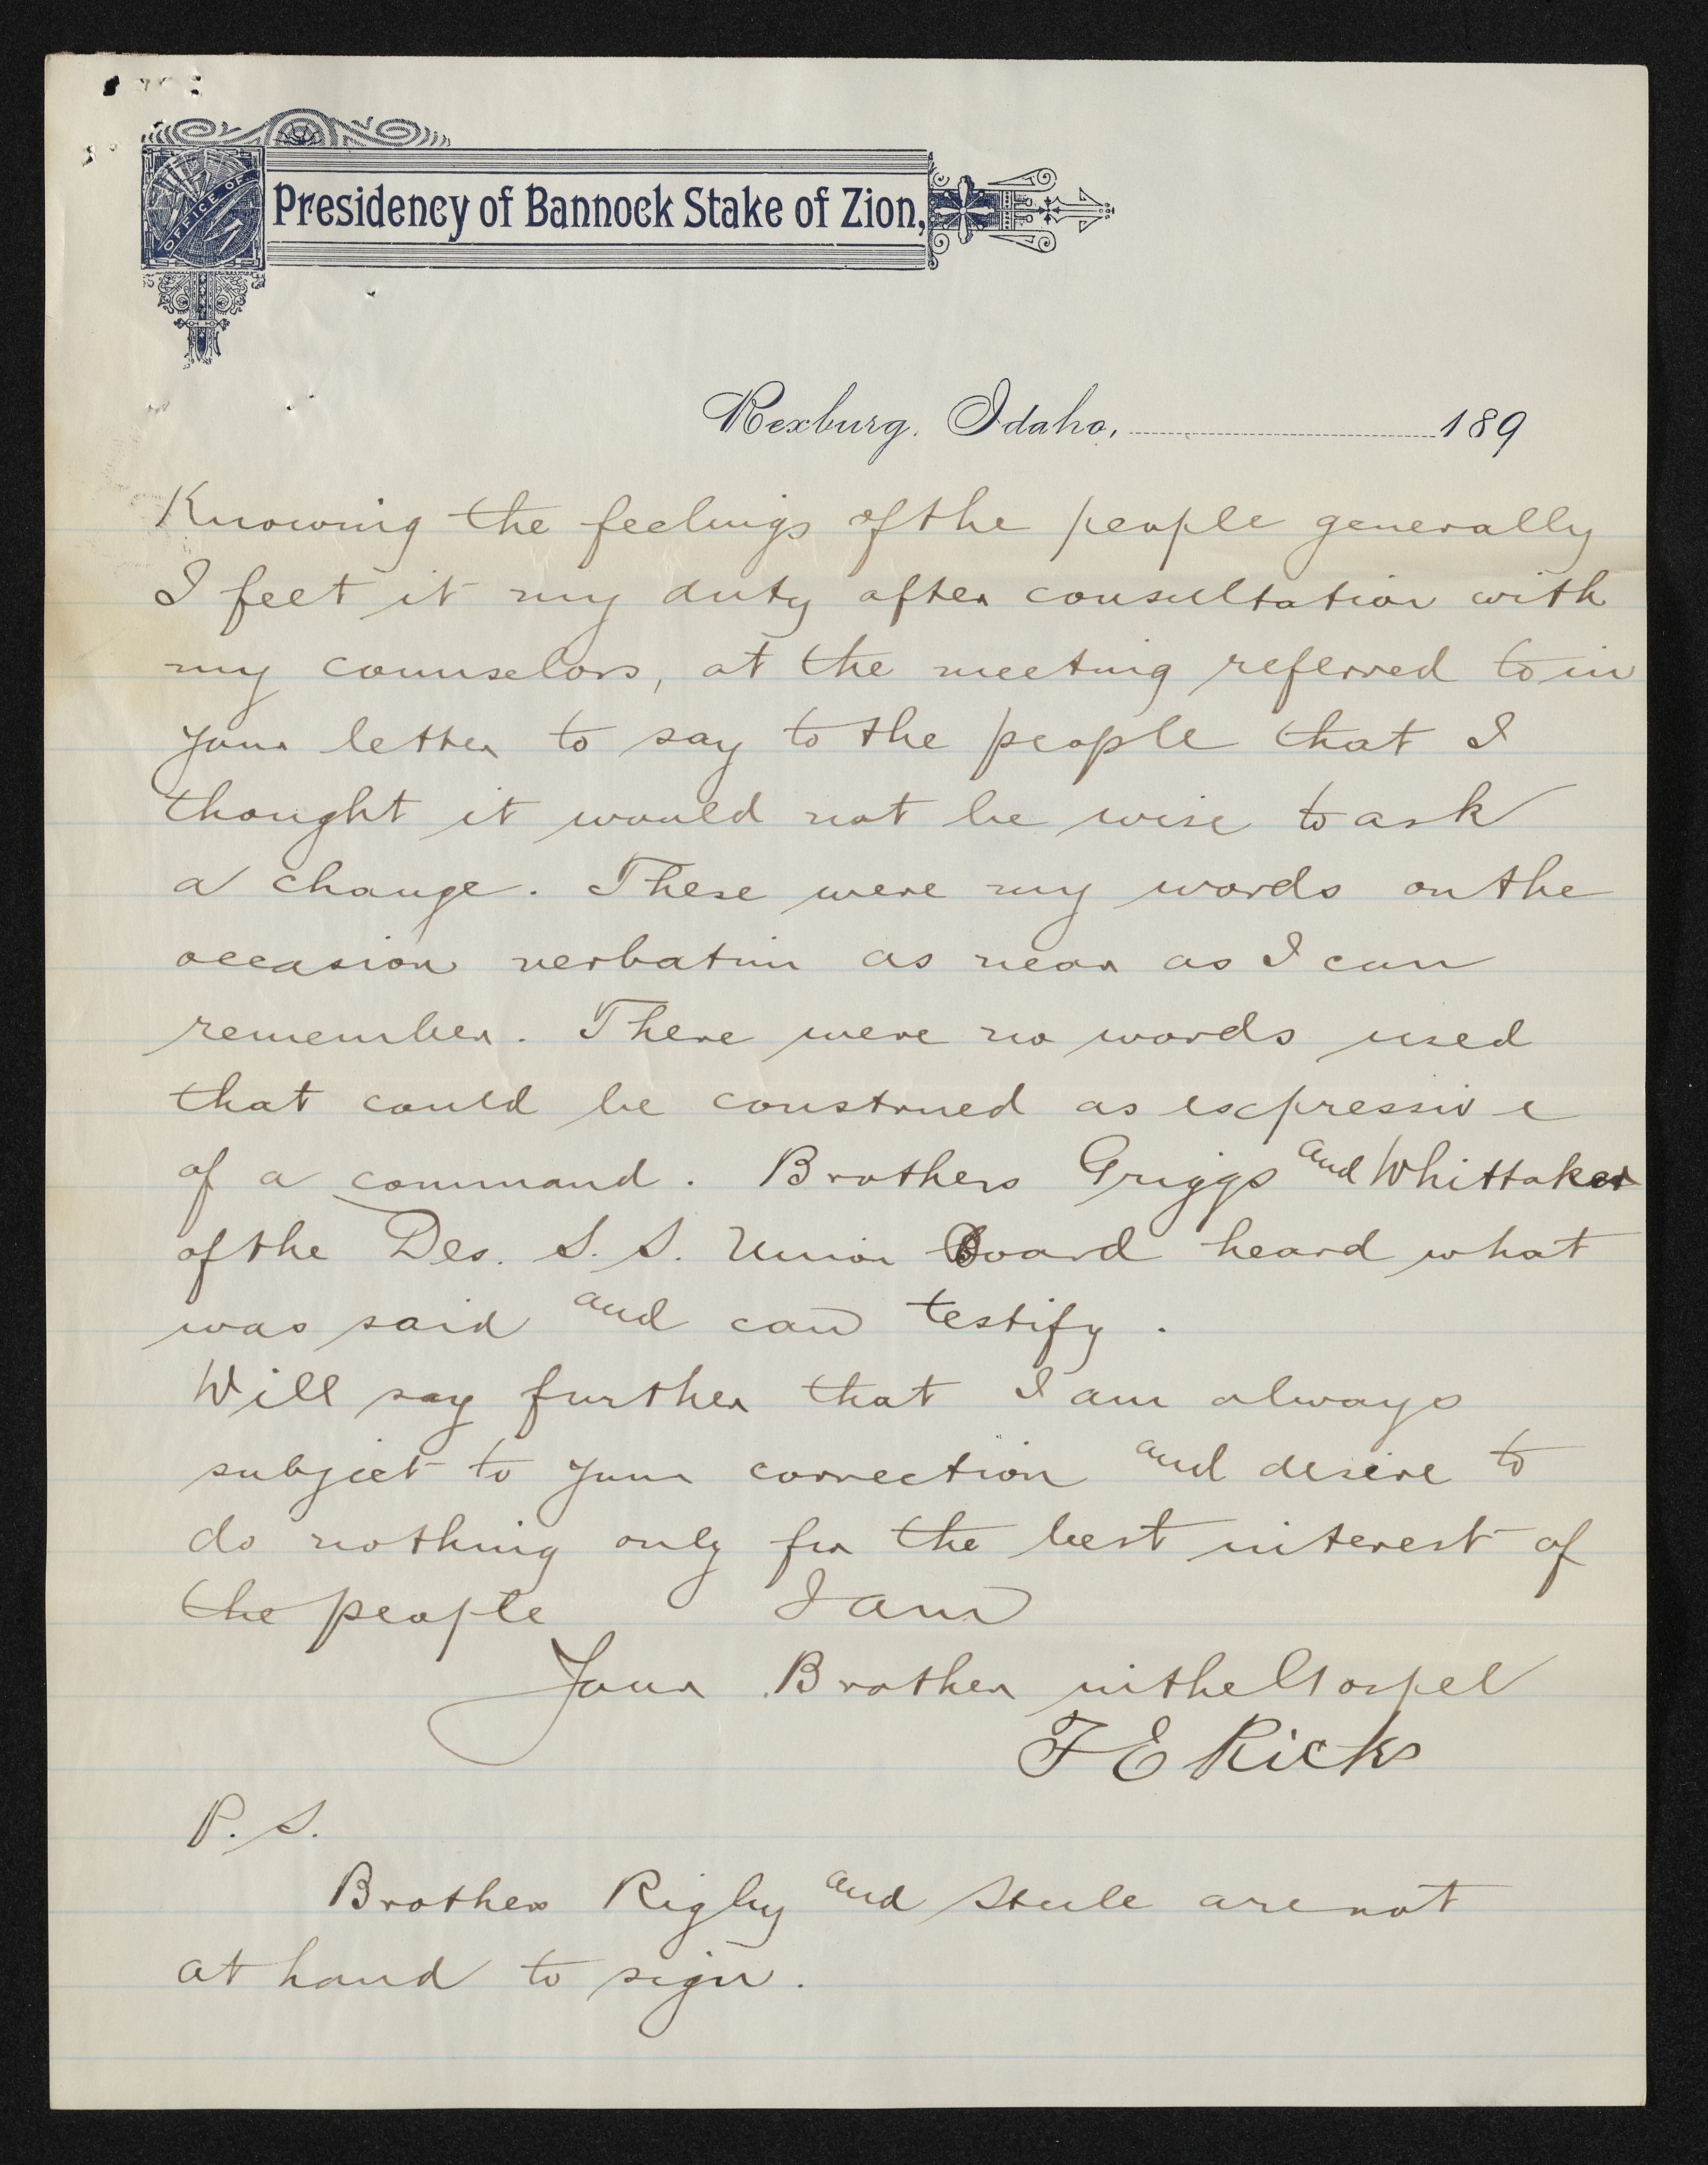 OFFICE OF
Presidency of Bannock Stake of Zion,
Rexburg, Idaho, 189
Knowing the feelings of the people generally
I feet it my duty after consultation with
my counselors, at the meeting referred to in
your letter to say to the people that I
thought it would not be wise to ask
a change. These were my words on the
occasion verbatim as near as I can
remember. There were no words used
that could be construed as expressive
of a command. Brothers Griggs and Whittaker
of the Des. S. S. Union Board heard what
was said and can testify.
Will say further that I am always
subject to your correction and desire to
do nothing only for the best interest of
the people I am
Your Brother in the Gospel
T E Ricks
P. S.
Brothers Rigby and Steele are not
at hand to sign.